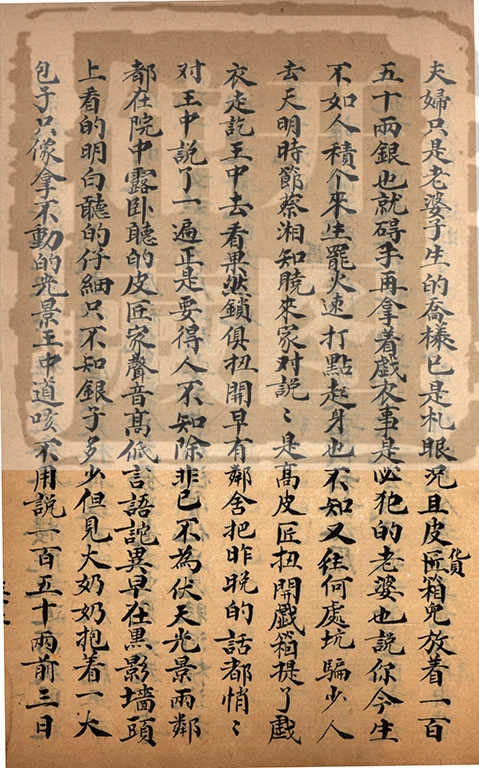 夫婦只是老婆子生的喬樣已是札眼况且皮匠貨箱兒放着一百
五十兩銀也就碍手再拿着戯衣事是必犯的老婆也說你今生
不如人積个來生罷火速打點起身也不知又往何處坑騙少人
去天明時節蔡湘知曉來家对說〻是高皮匠扭開戯箱提了戯
衣走訖王中去看果然鎖俱扭開早有鄰舍把昨晚的話都悄〻
对王中說了一遍正是要得人不知除非己不為伏天光景兩鄰
都在院中露卧聽的皮匠家聲音高低言語詫異早在黒影墻頭
上看的明白聽的仔細只不知銀子多少但見大奶奶抱着一大
包子只像拿不動的光景王中道咳不用說一百五十兩前三日